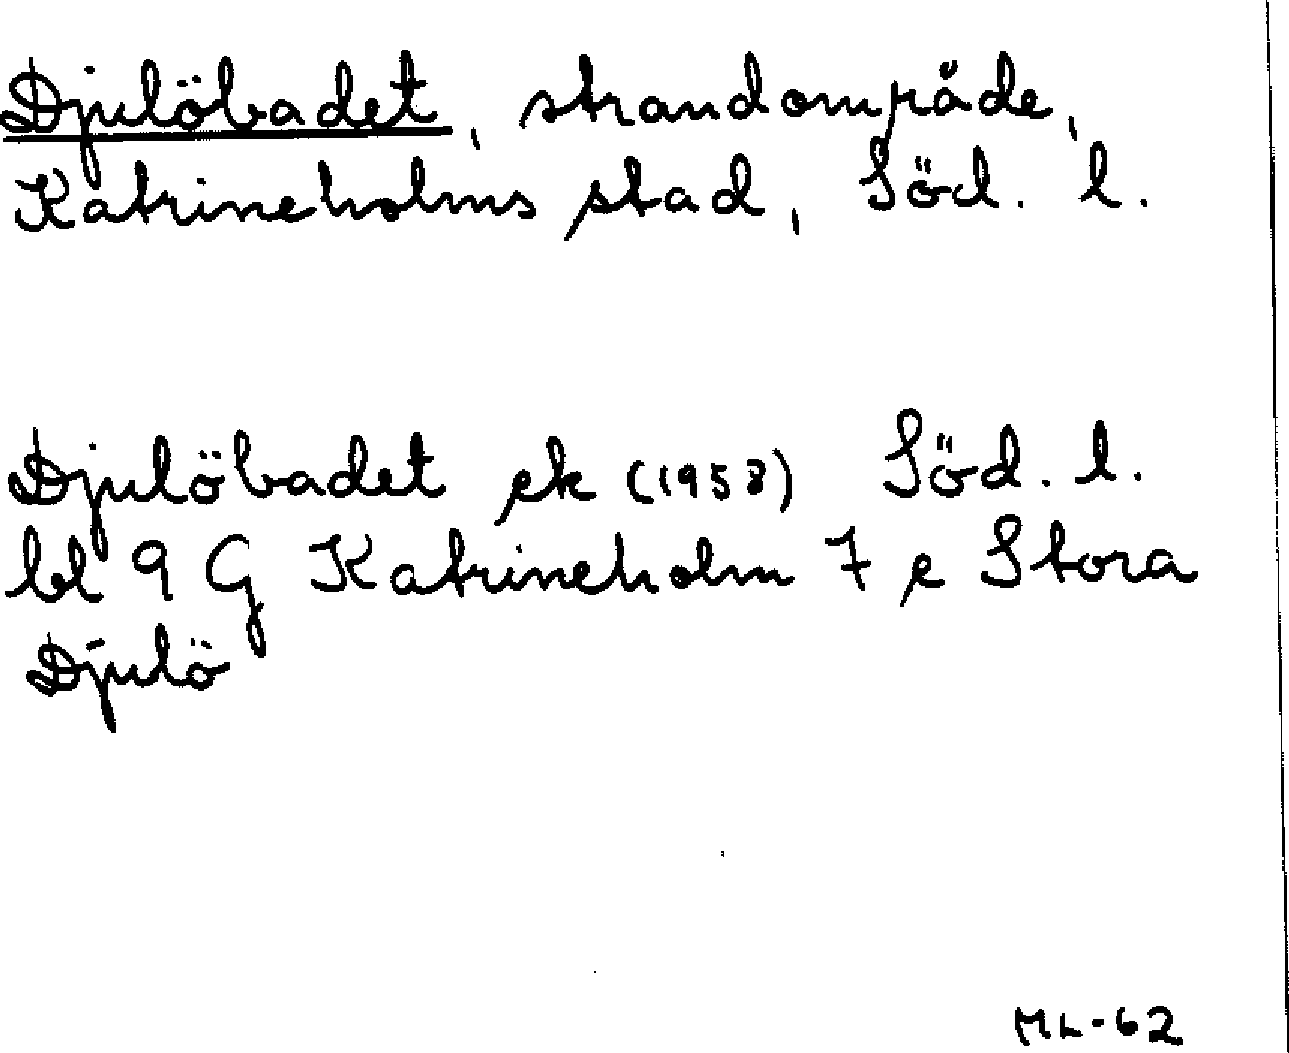 Djulöbadet, strandområde,
Katrineholms stad, Söd. l.
Djulöbadet ek (1958) Söd. l.
bl 9 G Katrineholm 7 e Stora
Djulö
ML-62